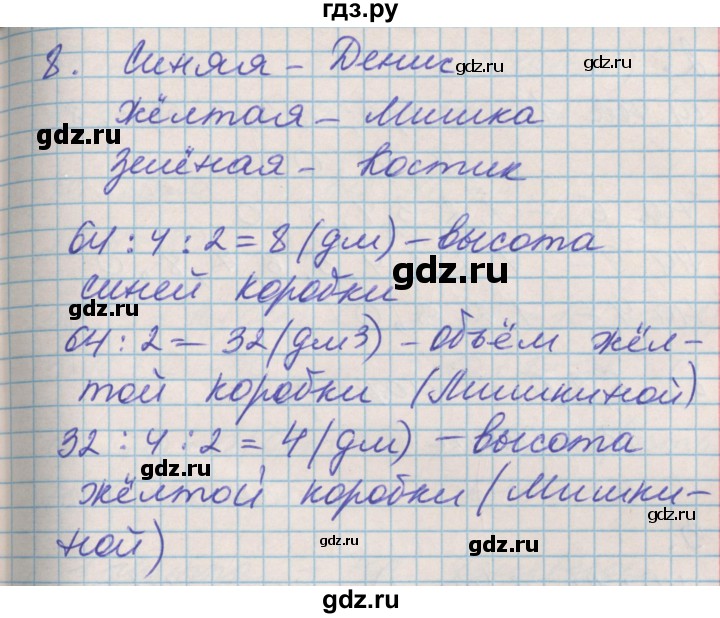 гдз.ру
8. Синяя - Денис
gdz.ru
Жёлтая - Мишка
gdz.ru
gdz.ru
Зелёная - Костик
64 : 4 : 2 = 8 (дм) - высота
синей коробки
gdz.ru
64 : 2 = 32 (дм3) - объём жёл-
той коробки (Мишкиной)
32 : 4 : 2 = 4 (дм) - высота
gdz.ru
жёлтой коробки (Мишки-
gdz.ru
ной)
gdz.ru
gdz.ru
gdz.ru